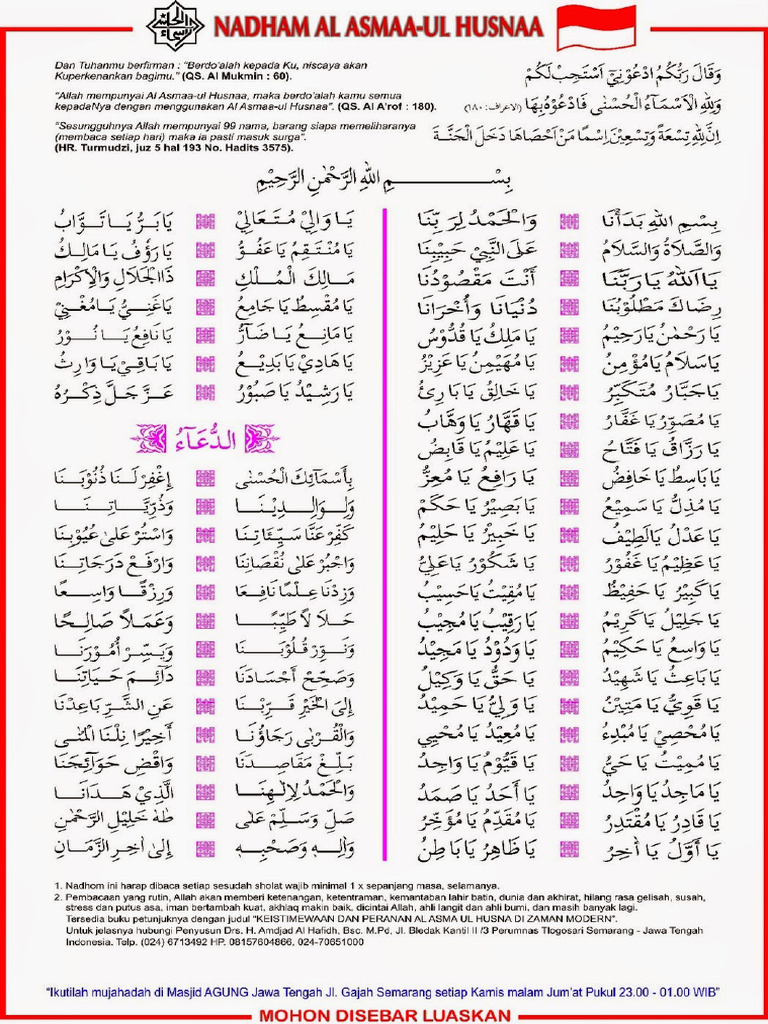 NADHAM AL ASMAA-UL HUSNAA
Dan Tuhanmu berfirman : "Berdo'alah kepada Ku, niscaya akan
Kuperkenankan bagimu." (QS. Al Mukmin : 60).
وَقَالَ رَبُّكُمُ ادْعُوْنِيْٓ اَسْتَجِبْ لَكُمْ
"Allah mempunyai Al Asmaa-ul Husnaa, maka berdo'alah kamu semua
kepadaNya dengan menggunakan Al Asmaa-ul Husnaa". (QS. Al A'rof : 180).
وَلِلّٰهِ الْاَسْمَآءُ الْحُسْنٰى فَادْعُوْهُ بِهَا (الاعراف: ١٨٠)
"Sesungguhnya Allah mempunyai 99 nama, barang siapa memeliharanya
(membaca setiap hari) maka ia pasti masuk surga".
(HR. Turmudzi, juz 5 hal 193 No. Hadits 3575).
اِنَّ لِلّٰهِ تِسْعَةً وَتِسْعِيْنَ اِسْمًا مَنْ اَحْصَاهَا دَخَلَ الْجَنَّةَ
بِسْمِ اللهِ الرَّحْمٰنِ الرَّحِيْمِ
بِسْمِ اللهِ بَدَأْنَا وَالْحَمْدُ لِرَبِّنَا
وَالصَّلَاةُ وَالسَّلَامُ عَلَى النَّبِيِّ حَبِيْبِنَا
يَا اَللهُ يَا رَبَّنَا أَنْتَ مَقْصُوْدُنَا
رِضَاكَ مَطْلُوْبُنَا دُنْيَانَا وَأُخْرَانَا
يَا رَحْمٰنُ يَا رَحِيْمُ يَا مَلِكُ يَا قُدُّوْسُ
يَا سَلَامُ يَا مُؤْمِنُ يَا مُهَيْمِنُ يَا عَزِيْزُ
يَا جَبَّارُ مُتَكَبِّرُ يَا خَالِقُ يَا بَارِئُ
يَا مُصَوِّرُ يَا غَفَّارُ يَا قَهَّارُ يَا وَهَّابُ
يَا رَزَّاقُ يَا فَتَّاحُ يَا عَلِيْمُ يَا قَابِضُ
يَا بَاسِطُ يَا خَافِضُ يَا رَافِعُ يَا مُعِزُّ
يَا مُذِلُّ يَا سَمِيْعُ يَا بَصِيْرُ يَا حَكَمُ
يَا عَدْلُ يَا لَطِيْفُ يَا خَبِيْرُ يَا حَلِيْمُ
يَا عَظِيْمُ يَا غَفُوْرُ يَا شَكُوْرُ يَا عَلِيُّ
يَا كَبِيْرُ يَا حَفِيْظُ يَا مُقِيْتُ يَا حَسِيْبُ
يَا جَلِيْلُ يَا كَرِيْمُ يَا رَقِيْبُ يَا مُجِيْبُ
يَا وَاسِعُ يَا حَكِيْمُ يَا وَدُوْدُ يَا مَجِيْدُ
يَا بَاعِثُ يَا شَهِيْدُ يَا حَقُّ يَا وَكِيْلُ
يَا قَوِيُّ يَا مَتِيْنُ يَا وَلِيُّ يَا حَمِيْدُ
يَا مُحْصِيْ يَا مُبْدِءُ يَا مُعِيْدُ يَا مُحْيِيْ
يَا مُمِيْتُ يَا حَيُّ يَا قَيُّوْمُ يَا وَاجِدُ
يَا مَاجِدُ يَا وَاحِدُ يَا أَحَدُ يَا صَمَدُ
يَا قَادِرُ يَا مُقْتَدِرُ يَا مُقَدِّمُ يَا مُؤَخِّرُ
يَا أَوَّلُ يَا اٰخِرُ يَا ظَاهِرُ يَا بَاطِنُ
يَا وَالِيْ مُتَعَالِيْ يَا بَرُّ يَا تَوَّابُ
يَا مُنْتَقِمُ يَا عَفُوُّ يَا رَؤُفُ يَا مَالِكُ
مَالِكَ الْمُلْكِ ذَاالْجَلَالِ وَالْاِكْرَامِ
يَا مُقْسِطُ يَا جَامِعُ يَا غَنِيُّ يَا مُغْنِيْ
يَا مَانِعُ يَا ضَآرُّ يَا نَافِعُ يَا نُوْرُ
يَا هَادِيْ يَا بَدِيْعُ يَا بَاقِيْ يَا وَارِثُ
يَا رَشِيْدُ يَا صَبُوْرُ عَزَّ جَلَّ ذِكْرُهُ
الدُّعَآءُ
بِأَسْمَائِكَ الْحُسْنٰى إِغْفِرْ لَنَا ذُنُوْبَنَا
وَلِوَالِدِيْنَا وَذُرِّيَّاتِنَا
كَفِّرْ عَنَّا سَيِّئَاتِنَا وَاسْتُرْ عَلٰى عُيُوْبِنَا
وَاجْبُرْ عَلٰى نُقْصَانِنَا وَارْفَعْ دَرَجَاتِنَا
وَزِدْنَا عِلْمًا نَافِعَا وَرِزْقًا وَاسِعًا
حَلَالًا طَيِّبًا وَعَمَلًا صَالِحًا
وَنَوِّرْ قُلُوْبَنَا وَيَسِّرْ أُمُوْرَنَا
وَصَحِّحْ أَجْسَادَنَا دَائِمَ حَيَاتِنَا
إِلَى الْخَيْرِ قَرِّبْنَا عَنِ الشَّرِّ بَاعِدْنَا
وَالْقُرْبٰى رَجَاؤُنَا أَخِيْرًا نِلْنَا الْمُنٰى
بَلِّغْ مَقَاصِدَنَا وَاقْضِ حَوَائِجَنَا
وَالْحَمْدُ لِإِلٰهِنَا الَّذِيْ هَدَانَا
صَلِّ وَسَلِّمْ عَلٰى طٰهٰ خَلِيْلِ الرَّحْمٰنِ
وَاٰلِهِ وَصَحْبِهِ إِلٰى اٰخِرِ الزَّمَانِ
1. Nadhom ini harap dibaca setiap sesudah sholat wajib minimal 1 x sepanjang masa, selamanya.
2. Pembacaan yang rutin, Allah akan memberi ketenangan, ketentraman, kemantaban lahir batin, dunia dan akhirat, hilang rasa gelisah, susah,
stress dan putus asa, iman bertambah kuat, akhlaq makin baik, dicintai Allah, ahli langit dan ahli bumi, dan masih banyak lagi.
Tersedia buku petunjuknya dengan judul "KEISTIMEWAAN DAN PERANAN AL ASMA UL HUSNA DI ZAMAN MODERN".
Untuk jelasnya hubungi Penyusun Drs. H. Amdjad Al Hafidh, Bsc. M.Pd, Jl. Bledak Kantil II /3 Perumnas Tlogosari Semarang - Jawa Tengah
Indonesia. Telp. (024) 6713492 HP. 08157604866, 024-70651000
"Ikutilah mujahadah di Masjid AGUNG Jawa Tengah Jl. Gajah Semarang setiap Kamis malam Jum'at Pukul 23.00 - 01.00 WIB"
MOHON DISEBAR LUASKAN